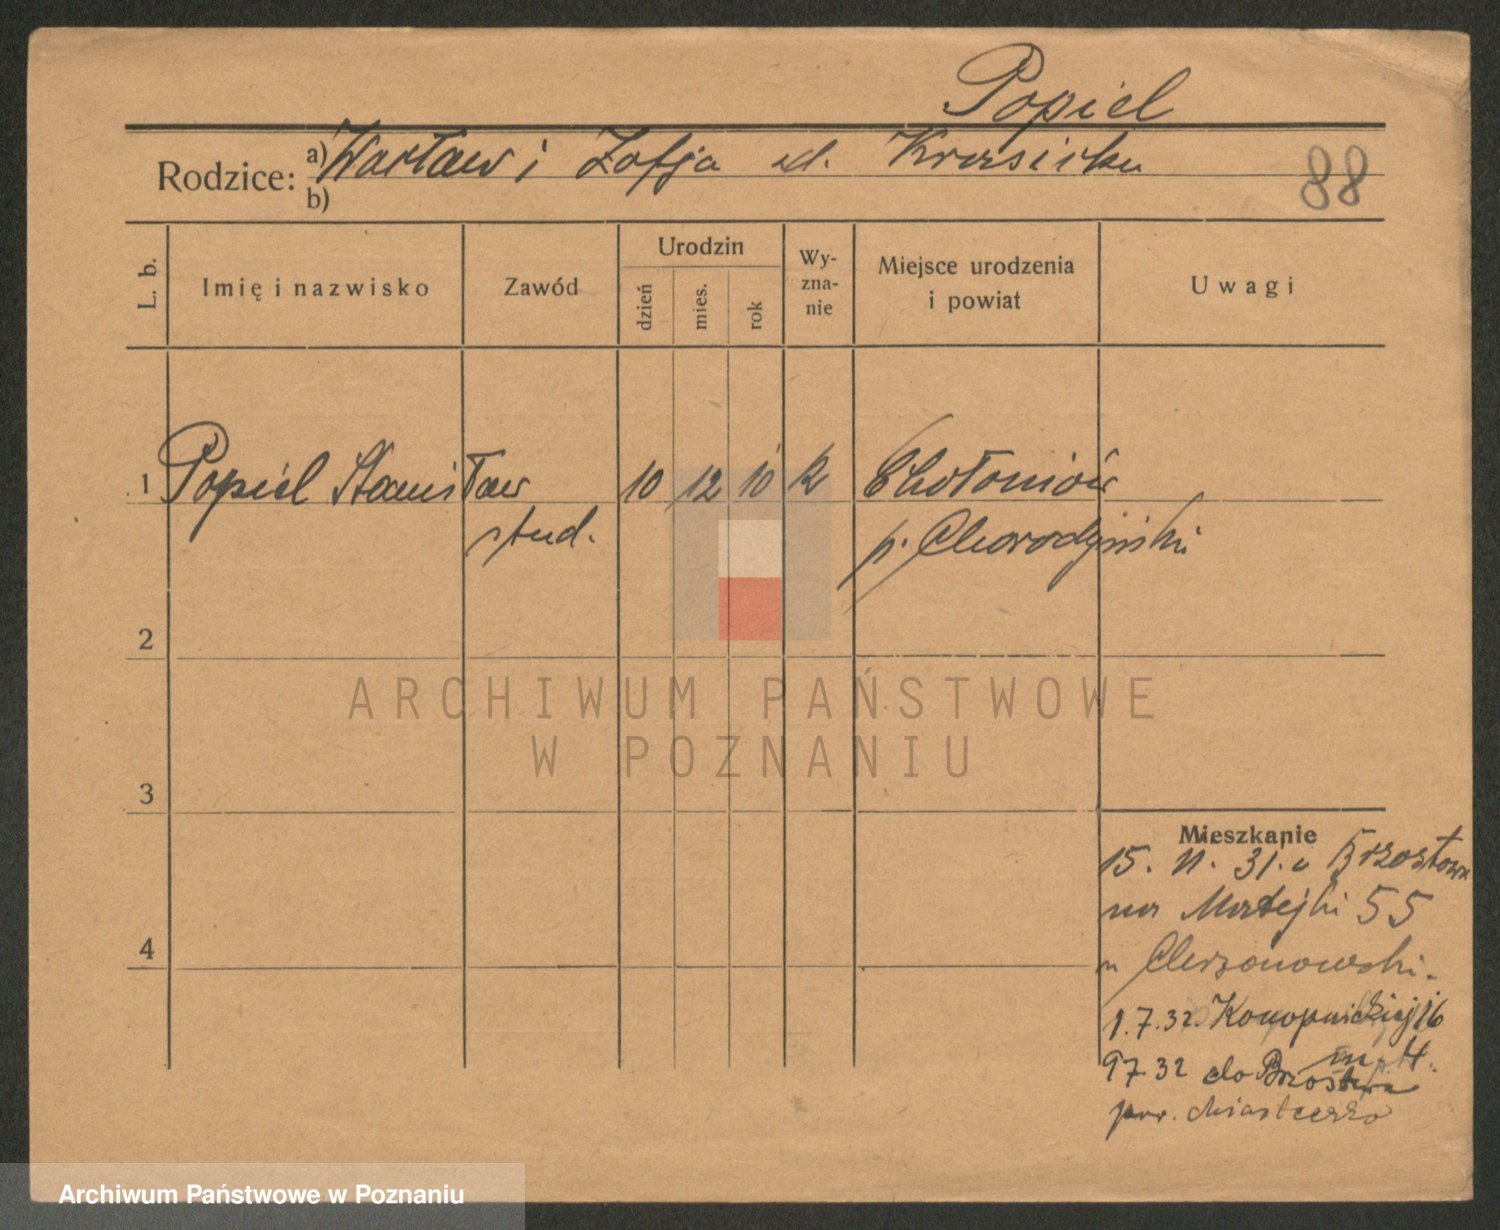 Popiel
Rodzice: a) Wacław i Zofja z d. Krasicka
b)
88
L. b.
Imię i nazwisko
Zawód
Urodzin
dzień
mies.
rok
Wy-
zna-
nie
Miejsce urodzenia
i powiat
Uwagi
1 Popiel Stanisław 10 12 10 k Chołoniów
stud. p. Chorodyński
2
3
4
ARCHIWUM PAŃSTWOWE
W POZNANIU
Mieszkanie
15. 11. 31. z Brzostowa
na Matejki 55
u Chrzanowski.
1.7.32. Konopnickiej 16
m. 4.
9 7.32 do Brzostowa
pow. Miasteczko
Archiwum Państwowe w Poznaniu